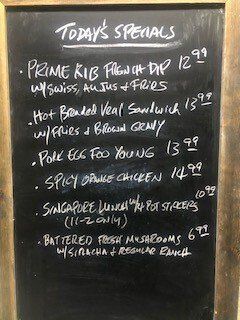 TODAY'S SPECIALS
• PRIME RIB FRENCH DIP 12.99
W/SWISS, AU JUS & FRIES
• Hot Breaded Veal Sandwich 13.99
W/FRIES & BROWN GRAVY
• PORK EGG FOO YOUNG 13.99
• SPICY ORANGE CHICKEN 14.99
• SINGAPORE LUNCH W/4 POT STICKERS 10.99
(11-2 ONLY)
• BATTERED FRESH MUSHROOMS 6.99
W/SIRACHA & REGULAR RANCH